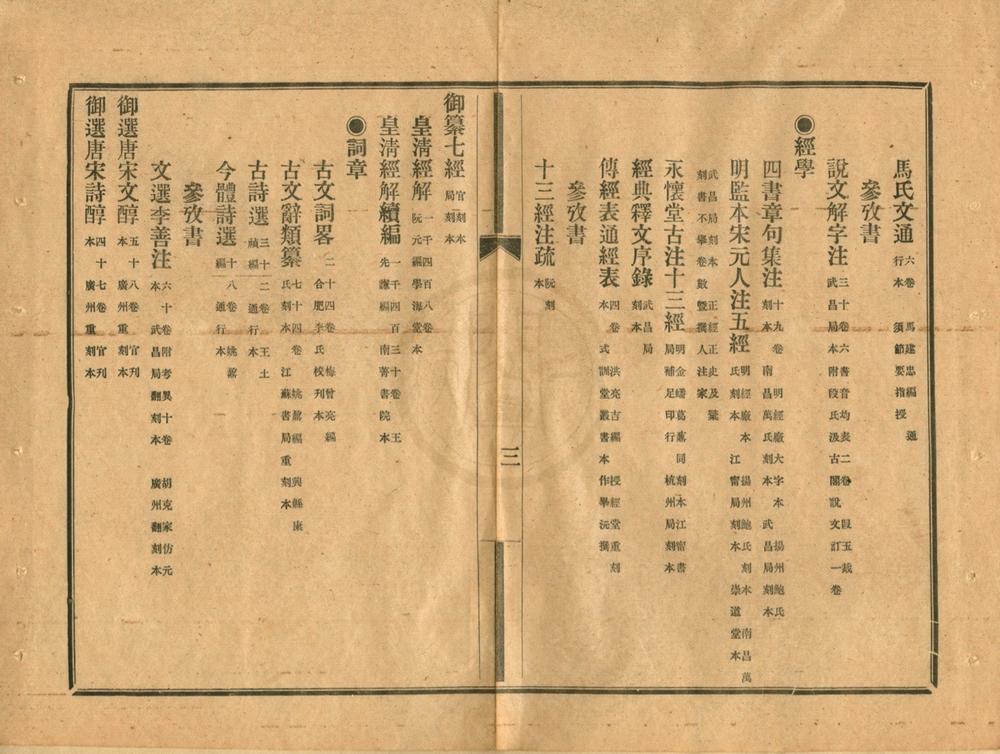 馬氏文通 六卷 馬建忠編 通行本 須節要指授
參攷書
說文解字注 三十卷 六書音均表二卷 段玉裁 武昌局本附段氏汲古閣說文訂一卷
◉經學
四書章句集注 十九卷 明經廠大字本 揚州鮑氏刻本 南昌萬氏刻本 武昌局刻本
明監本宋元人注五經 明經廠本 揚州鮑氏刻本 南昌萬氏刻本 江甯局刻本 崇道堂本
武昌局刻本 正經正史及彙刻書不舉卷數暨撰人注家
永懷堂古注十三經 明金蟠葛鼒同刻本 江甯書局補足印行 杭州局刻本
經典釋文序錄 武昌局刻本
傳經表通經表 四卷 洪亮吉編 授經堂重刻本 式訓堂叢書本作畢沅撰
參攷書
十三經注疏 阮刻本
三
御纂七經 官刻本 局刻本
皇淸經解 一千四百八卷 阮元編 學海堂本
皇淸經解續編 一千四百三十卷 王先謙編 南菁書院本
◉詞章
古文詞畧 二十四卷 梅曾亮編 合肥李氏校刋本
古文辭類纂 七十四卷 姚鼐編 興縣康氏刻本 江蘇書局重刻本
古詩選 三十二卷 王士禎編 通行本
今體詩選 十八卷 姚鼐編 通行本
參攷書
文選李善注 六十卷 附考異十卷 胡克家仿元本 武昌局翻刻本 廣州翻刻本
御選唐宋文醇 五十八卷 官刋本 廣州重刻本
御選唐宋詩醇 四十七卷 官刋本 廣州重刻本